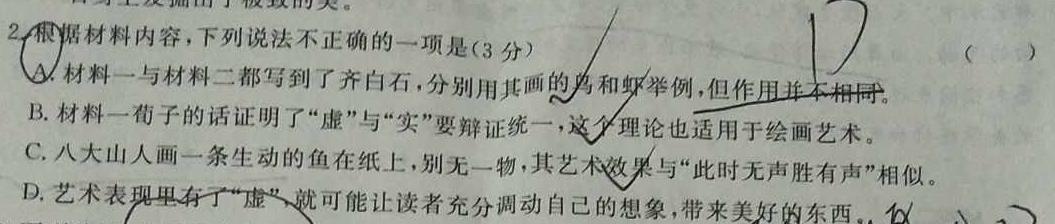 2.根据材料内容,下列说法不正确的一项是(3分) ( )
A.材料一与材料二都写到了齐白石,分别用其画的鸟和虾举例,但作用并不相同。
B.材料一荀子的话证明了“虚”与“实”要辩证统一,这个理论也适用于绘画艺术。
C.八大山人画一条生动的鱼在纸上,别无一物,其艺术效果与“此时无声胜有声”相似。
D.艺术表现里有了“虚”,就可能让读者充分调动自己的想象,带来美好的东西。